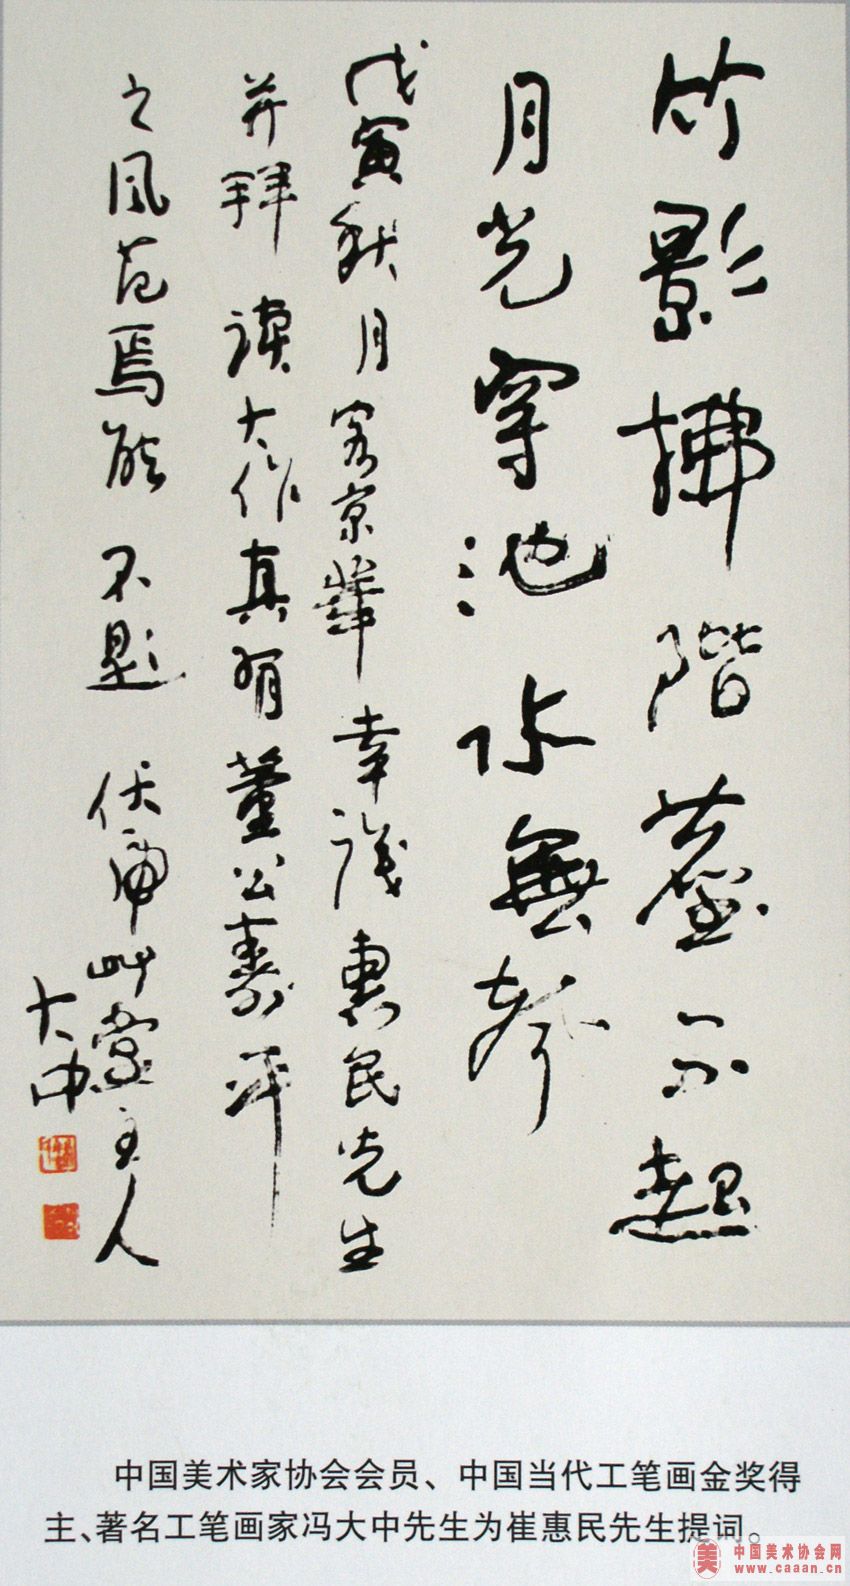 竹影拂階塵不起
月光穿池水無
戊寅秋月客京華幸識惠民先生
并拜读大作真有董公壽平
之風范焉能不題 伏虎艸堂主人
大中
中国美术家协会会员、中国当代工笔画金奖得
主、著名工笔画家冯大中先生为崔惠民先生提词。
美 中国美术协会网
www.caaan.cn